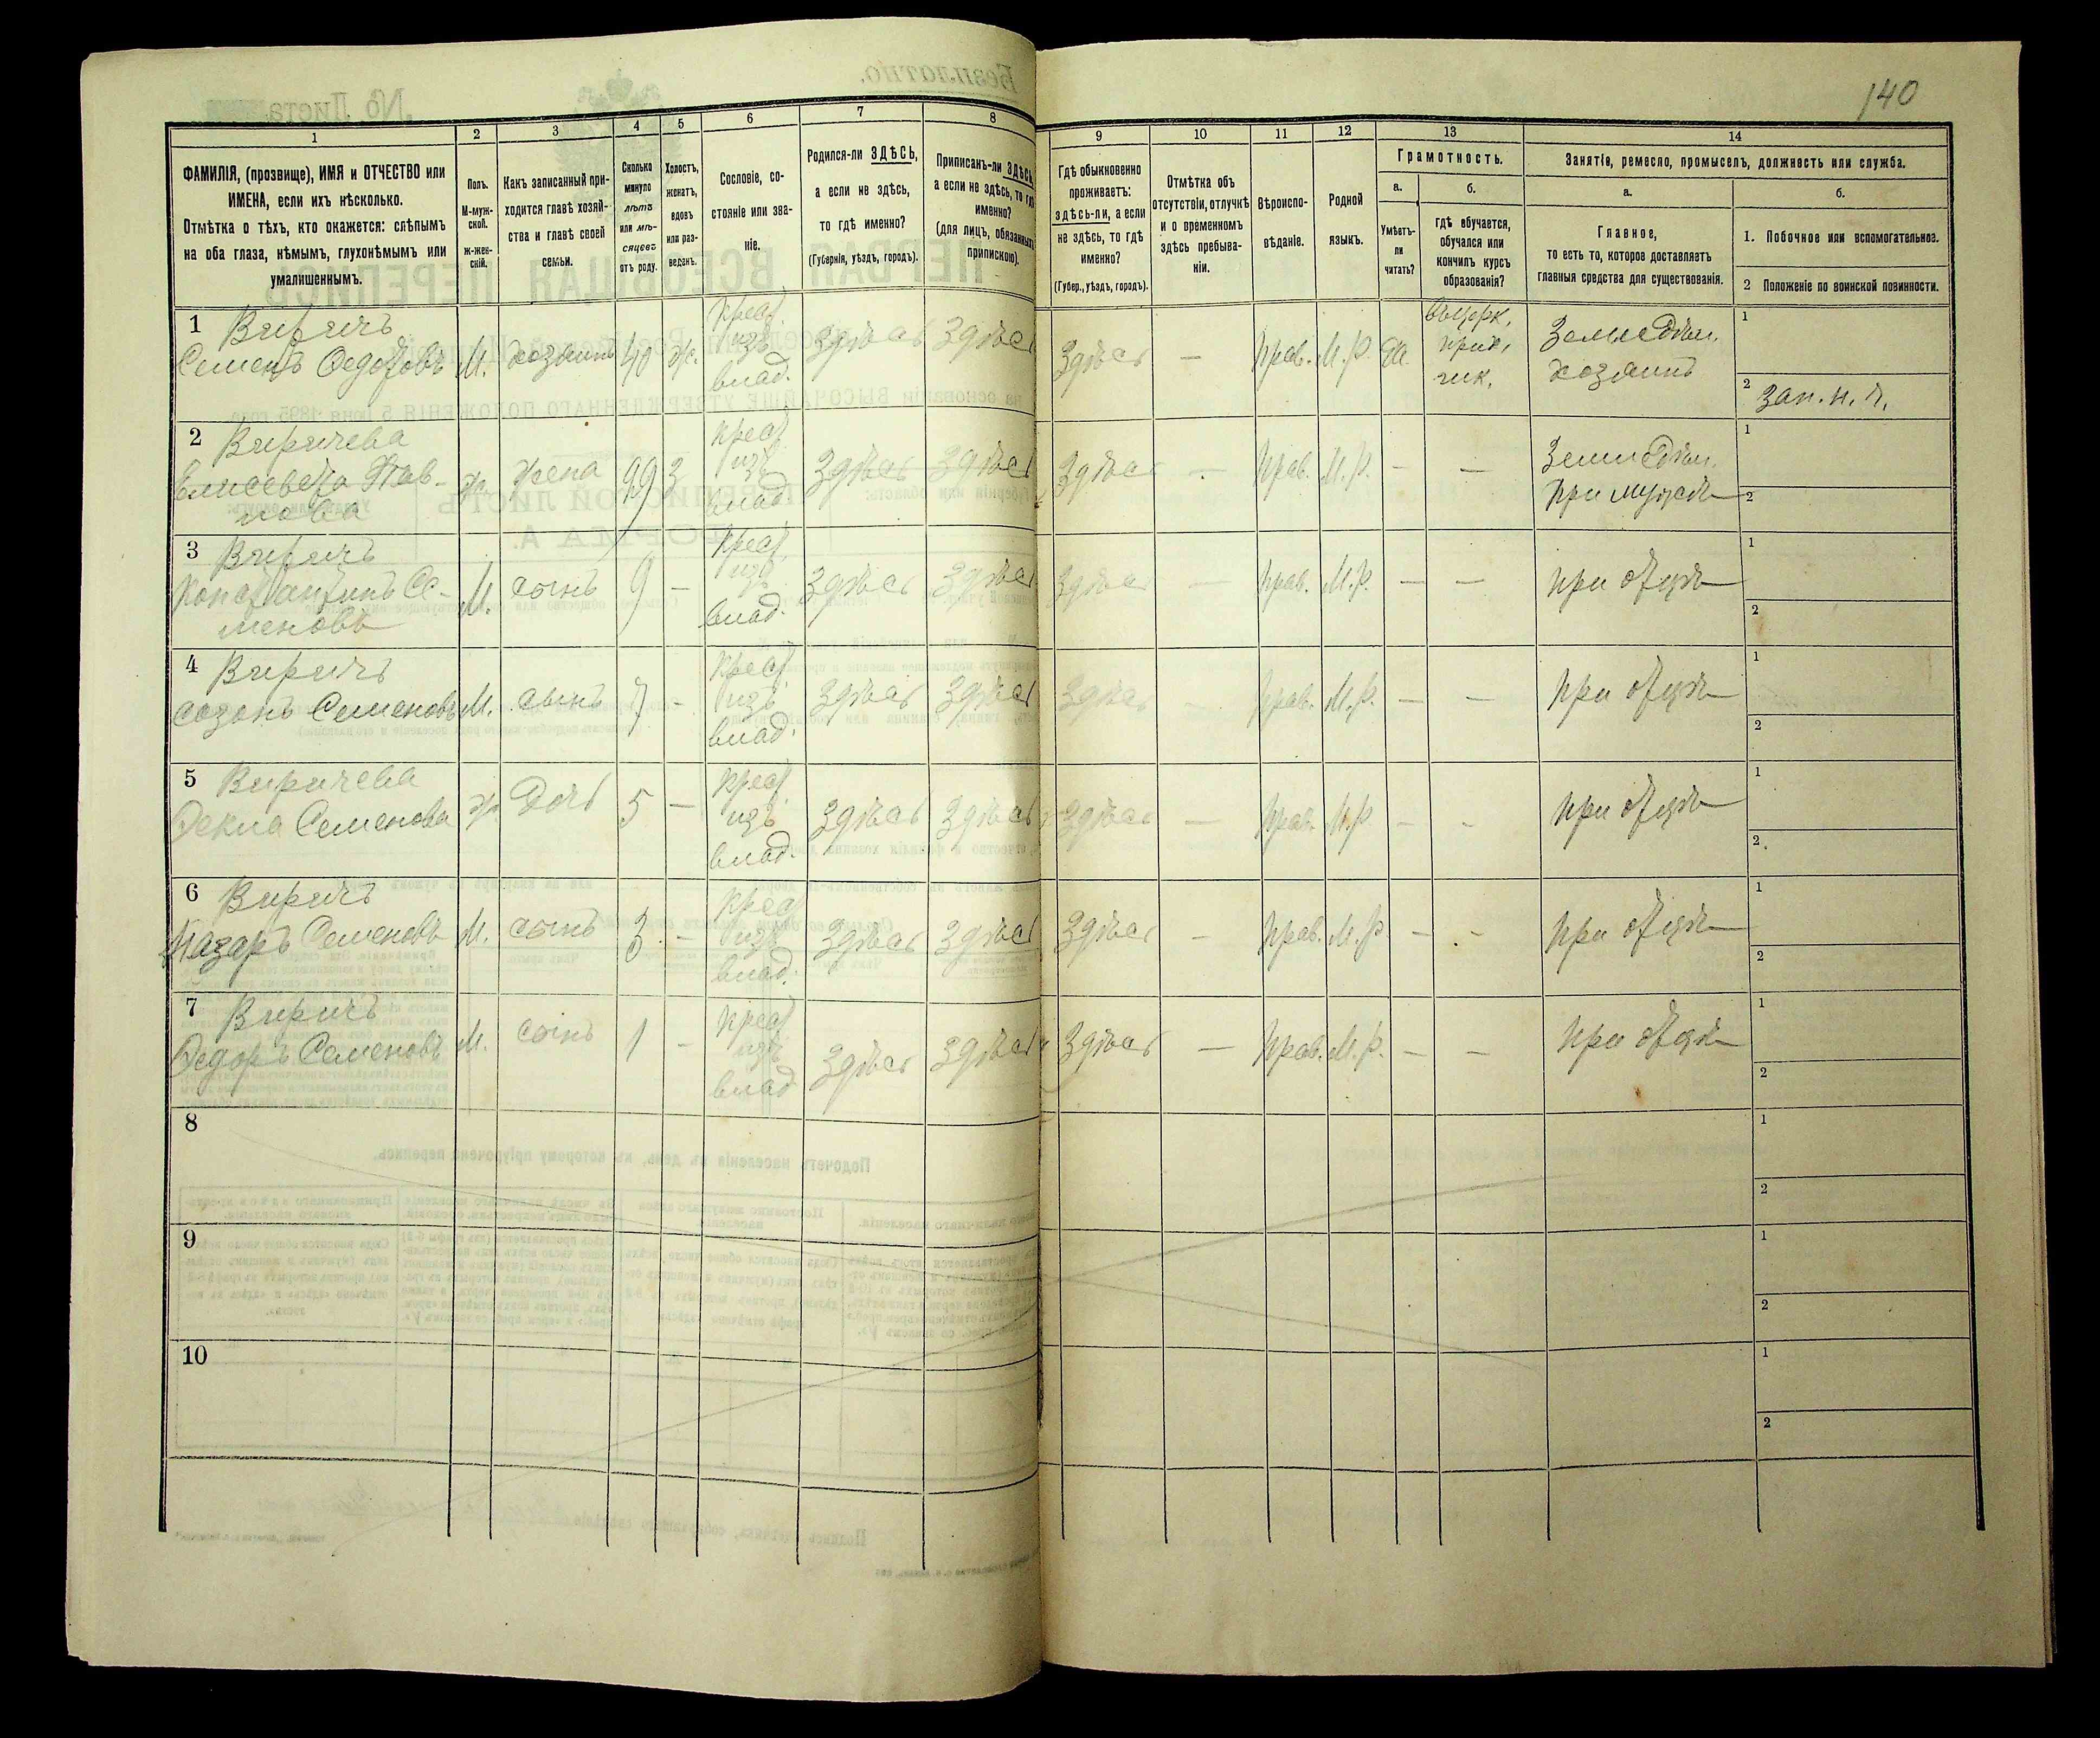 140
1
2
3
4
5
6
7
8
9
10
11
12
13
14
ФАМИЛІЯ, (прозвище), ИМЯ и ОТЧЕСТВО или
ИМЕНА, если ихъ нѣсколько.
Отмѣтка о тѣхъ, кто окажется: слѣпымъ
на оба глаза, нѣмымъ, глухонѣмымъ или
умалишеннымъ.
Полъ.
М-муж-
ской.
Ж-жен-
скій.
Какъ записанный при-
ходится главѣ хозяй-
ства и главѣ своей
семьи.
Сколько
минуло
лѣтъ
или мѣ-
сяцевъ
отъ роду.
Холостъ,
женатъ,
вдовъ
или раз-
веденъ.
Сословіе, со-
стояніе или зва-
ніе.
Родился-ли ЗДѢСЬ,
а если не здѣсь,
то гдѣ именно?
(Губернія, уѣздъ, городъ).
Приписанъ-ли ЗДѢСЬ,
а если не здѣсь, то гдѣ
именно?
(для лицъ, обязанныхъ
припискою).
Гдѣ обыкновенно
проживаетъ:
здѣсь-ли, а если
не здѣсь, то гдѣ
именно?
(Губер., уѣздъ, городъ).
Отмѣтка объ
отсутствіи, отлучкѣ
и о временномъ
здѣсь пребыва-
ніи.
Вѣроиспо-
вѣданіе.
Родной
языкъ.
Грамотность.
а.
Умѣетъ-
ли
читать?
б.
гдѣ обучается,
обучался или
кончилъ курсъ
образованія?
Занятіе, ремесло, промыселъ, должность или служба.
а.
Главное,
то есть то, которое доставляетъ
главныя средства для существованія.
б.
1. Побочное или вспомогательное.
2 Положеніе по воинской повинности.
1 Виричъ
Семенъ Федотовъ М. хозяинъ 40 ж. Крест. изъ влад. Здѣсь Здѣсь Здѣсь — Прав. М.р. да Земледѣл. хозяинъ
1
2 зап. н. ч.
2 Виричева
Елисавета Пав-
лова ж. жена Крест. изъ влад. Здѣсь Здѣсь Здѣсь — Прав. М.р. — — Земледѣл. при мужѣ
1
2
3 Виричъ
Константинъ Се-
меновъ М. сынъ 9 — Крест. изъ влад. Здѣсь Здѣсь Здѣсь — Прав. М.р. — — при отцѣ
1
2
4 Виричъ
Созонъ Семеновъ М. сынъ 7 — Крест. изъ влад. Здѣсь Здѣсь Здѣсь — Прав. М.р. — — при отцѣ
1
2
5 Виричева
Фекла Семенова ж. дочь 5 — Крест. изъ влад. Здѣсь Здѣсь Здѣсь — Прав. М.р. — — при отцѣ
1
2
6 Виричъ
Назаръ Семеновъ М. сынъ 3 — Крест. изъ влад. Здѣсь Здѣсь Здѣсь — Прав. М.р. — — при отцѣ
1
2
7 Виричъ
Федоръ Семеновъ М. сынъ 1 — Крест. изъ влад. Здѣсь Здѣсь Здѣсь — Прав. М.р. — — при отцѣ
1
2
8
1
2
9
1
2
10
1
2